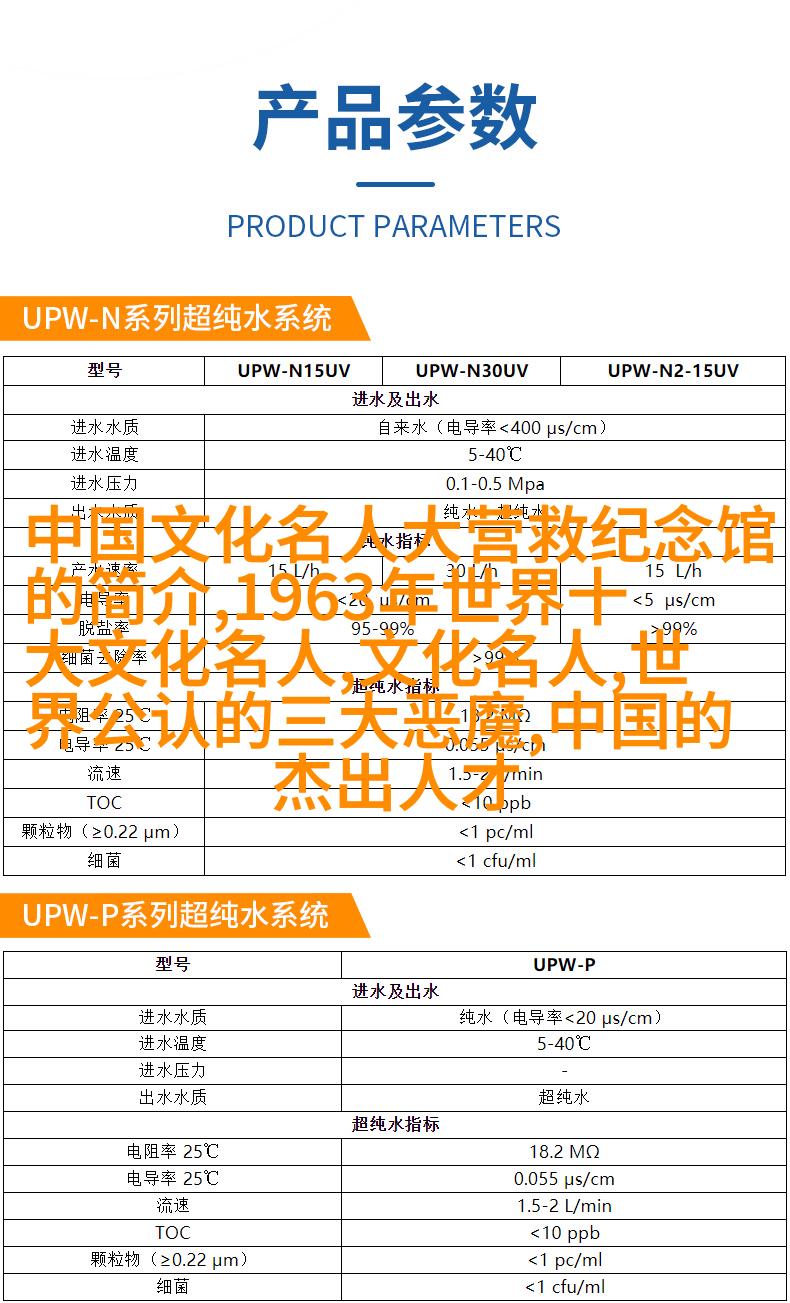 产品参数
PRODUCT PARAMETERS
UPW-N系列超纯水系统
型号 UPW-N15UV UPW-N30UV UPW-N2-15UV
进水及出水
进水水质 自来水（电导率<400 µs/cm）
进水温度 5-40℃
进水压力 0.1-0.5 Mpa
出水水质 纯水、超纯水
纯水指标
产水速率 15 L/h 30 L/h 15 L/h
电导率 <20 µs/cm <5 µs/cm
脱盐率 95-99% >99%
细菌去除率 >99%
超纯水指标
电阻率 25℃ 18.2 MΩ
电导率 25℃ 0.055 µs/cm
流速 1.5-2 L/min
TOC <10 ppb
颗粒物（≥0.22 µm） <1 pc/ml
细菌 <1 cfu/ml
中国文化名人大营救纪念馆
的简介,1963年世界十
大文化名人,文化名人,世
界公认的三大恶魔,中国的
杰出人才
UPW-P系列超纯水系统
型号 UPW-P
进水及出水
进水水质 纯水（电导率<20 µs/cm）
进水温度 5-40℃
进水压力 -
出水水质 超纯水
超纯水指标
电阻率 25℃ 18.2 MΩ
电导率 25℃ 0.055 µs/cm
流速 1.5-2 L/min
TOC <10 ppb
颗粒物（≥0.22 µm） <1 pc/ml
细菌 <1 cfu/ml